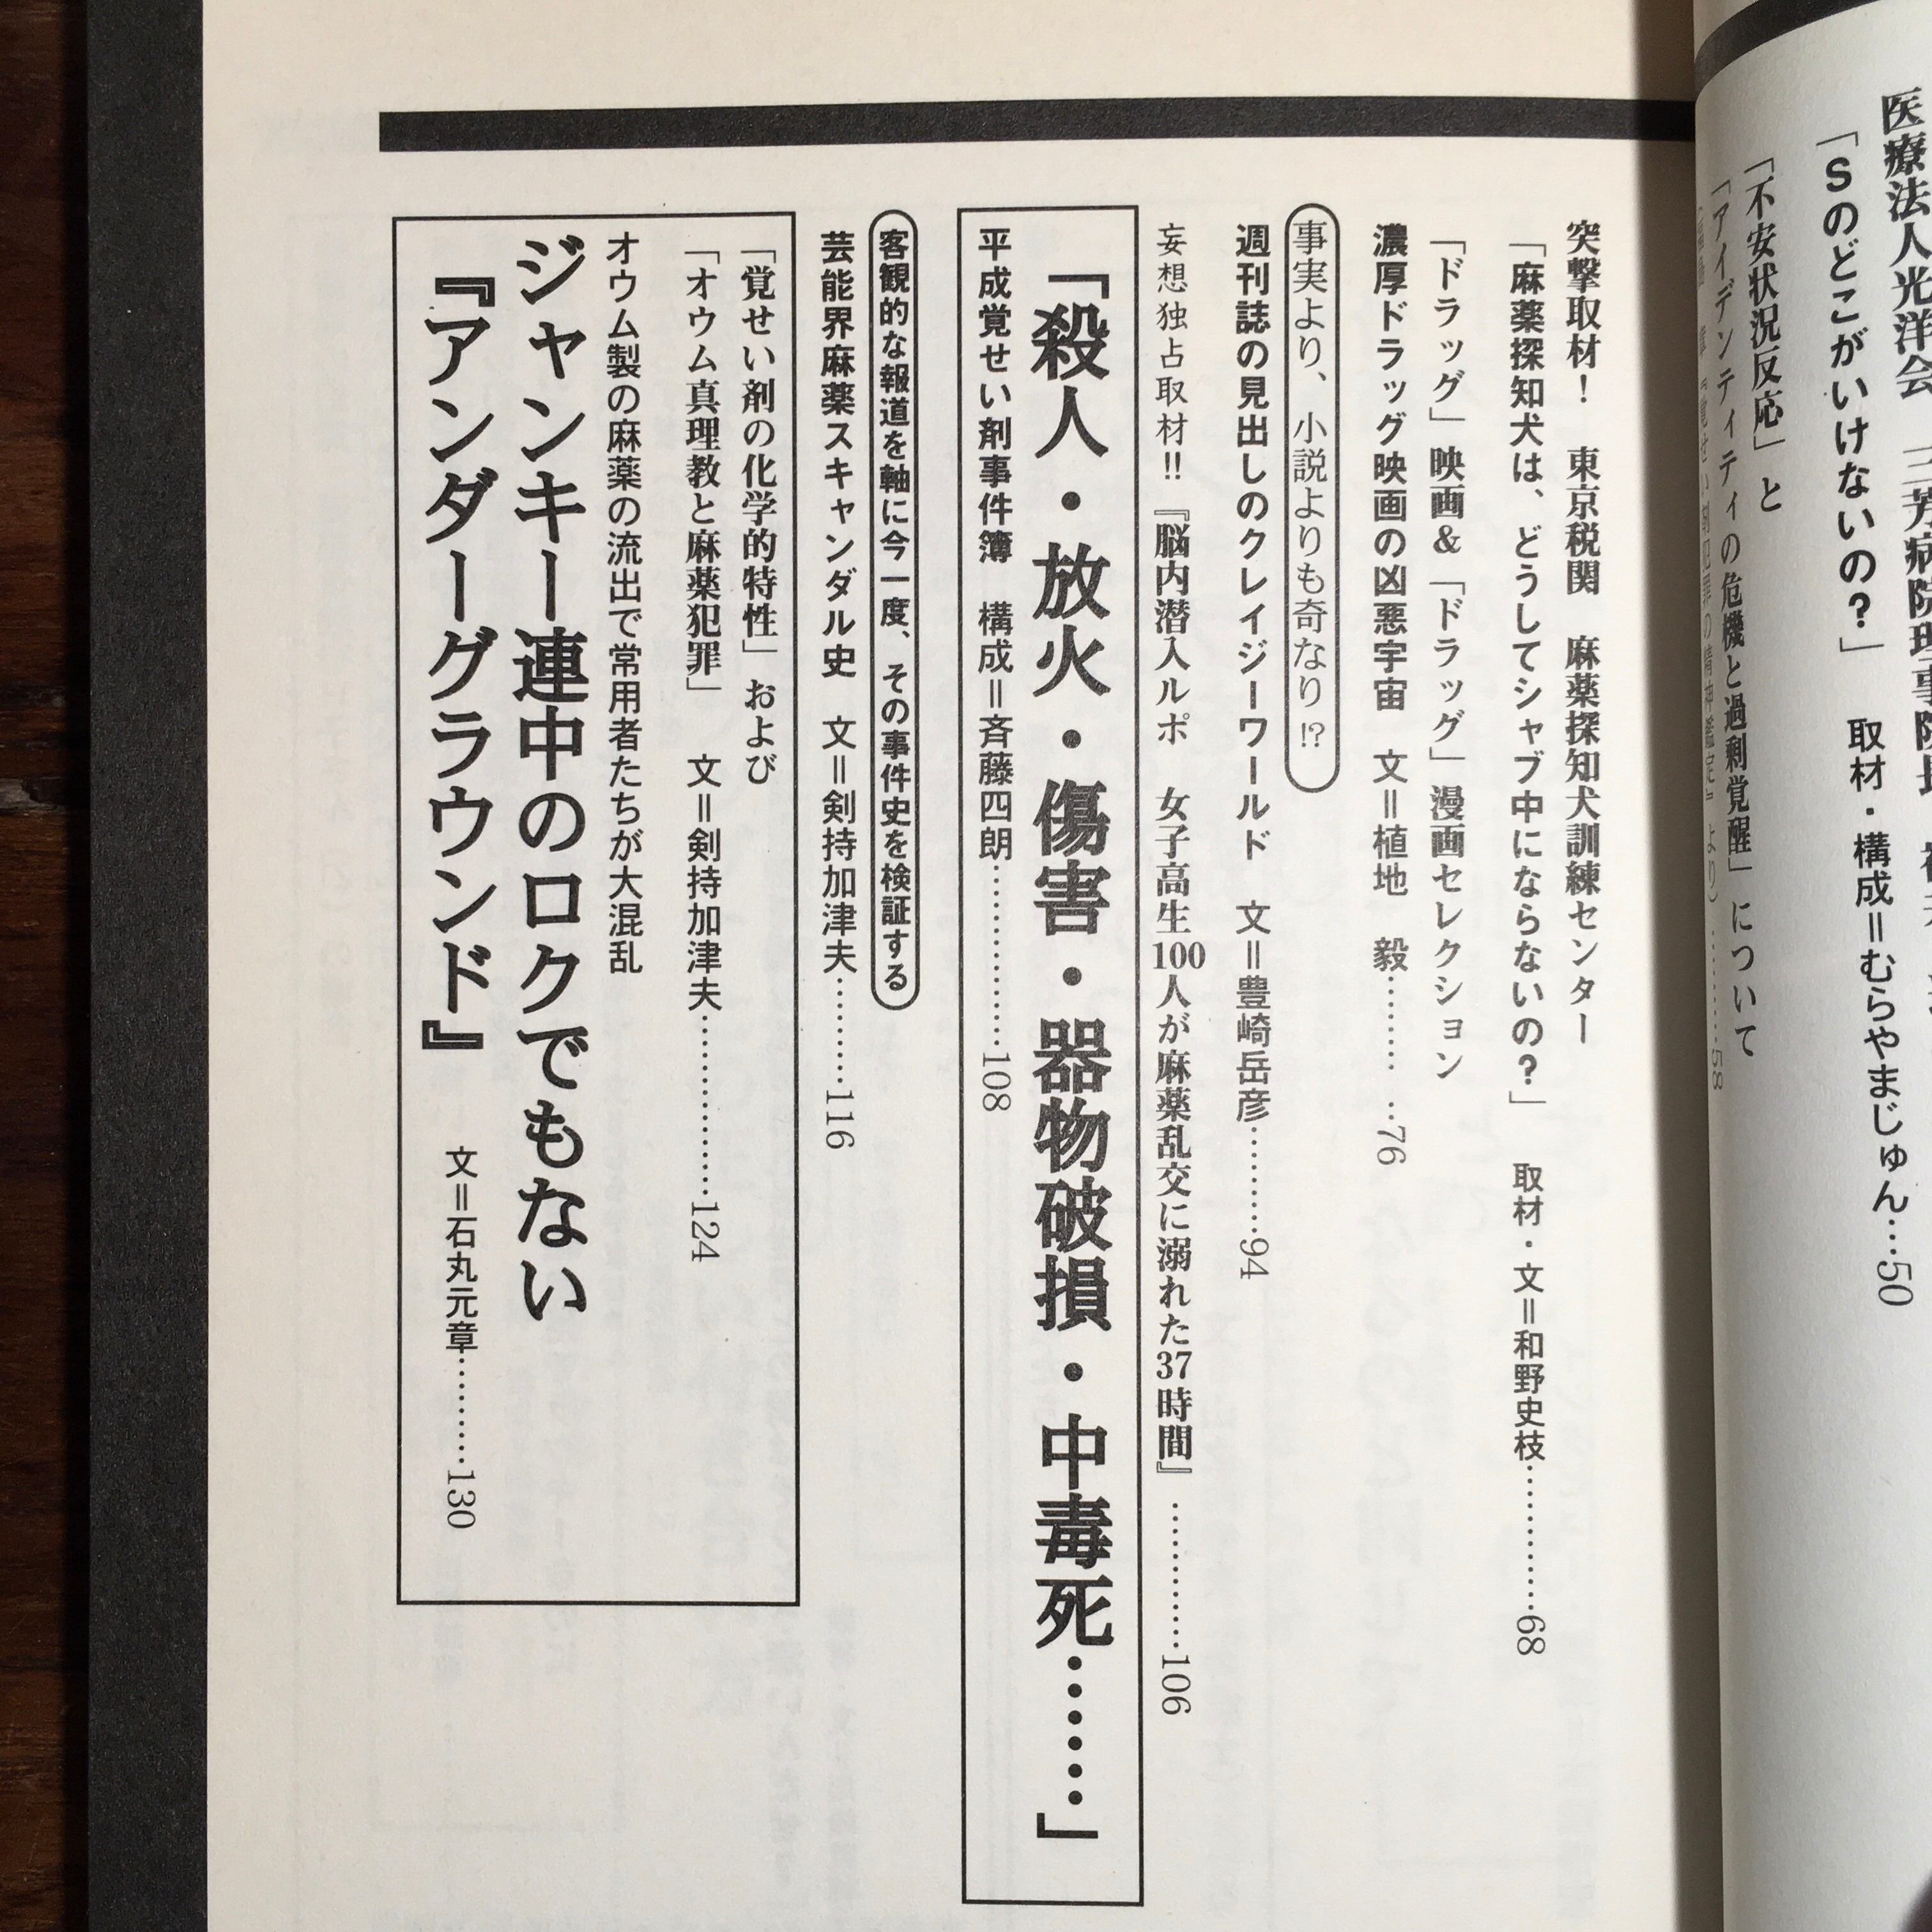 医療法人光洋会　三芳病院理事院長
「Sのどこがいけないの？」　取材・構成＝むらやまじゅん…50
「不安状況反応」と
「アイデンティティの危機と過剰覚醒」について
突撃取材！　東京税関　麻薬探知犬訓練センター
「麻薬探知犬は、どうしてシャブ中にならないの？」　取材・文＝和野史枝…………68
「ドラッグ」映画＆「ドラッグ」漫画セレクション
濃厚ドラッグ映画の凶悪宇宙　文＝植地　毅………76
事実より、小説よりも奇なり!?
週刊誌の見出しのクレイジーワールド　文＝豊崎岳彦………94
妄想独占取材!!『脳内潜入ルポ　女子高生100人が麻薬乱交に溺れた37時間』…………106
「殺人・放火・傷害・器物破損・中毒死……」
平成覚せい剤事件簿　構成＝斉藤四朗…………108
客観的な報道を軸に今一度、その事件史を検証する
芸能界麻薬スキャンダル史　文＝剣持加津夫………116
「覚せい剤の化学的特性」および
「オウム真理教と麻薬犯罪」　文＝剣持加津夫…………124
オウム製の麻薬の流出で常用者たちが大混乱
ジャンキー連中のロクでもない
『アンダーグラウンド』　文＝石丸元章………130